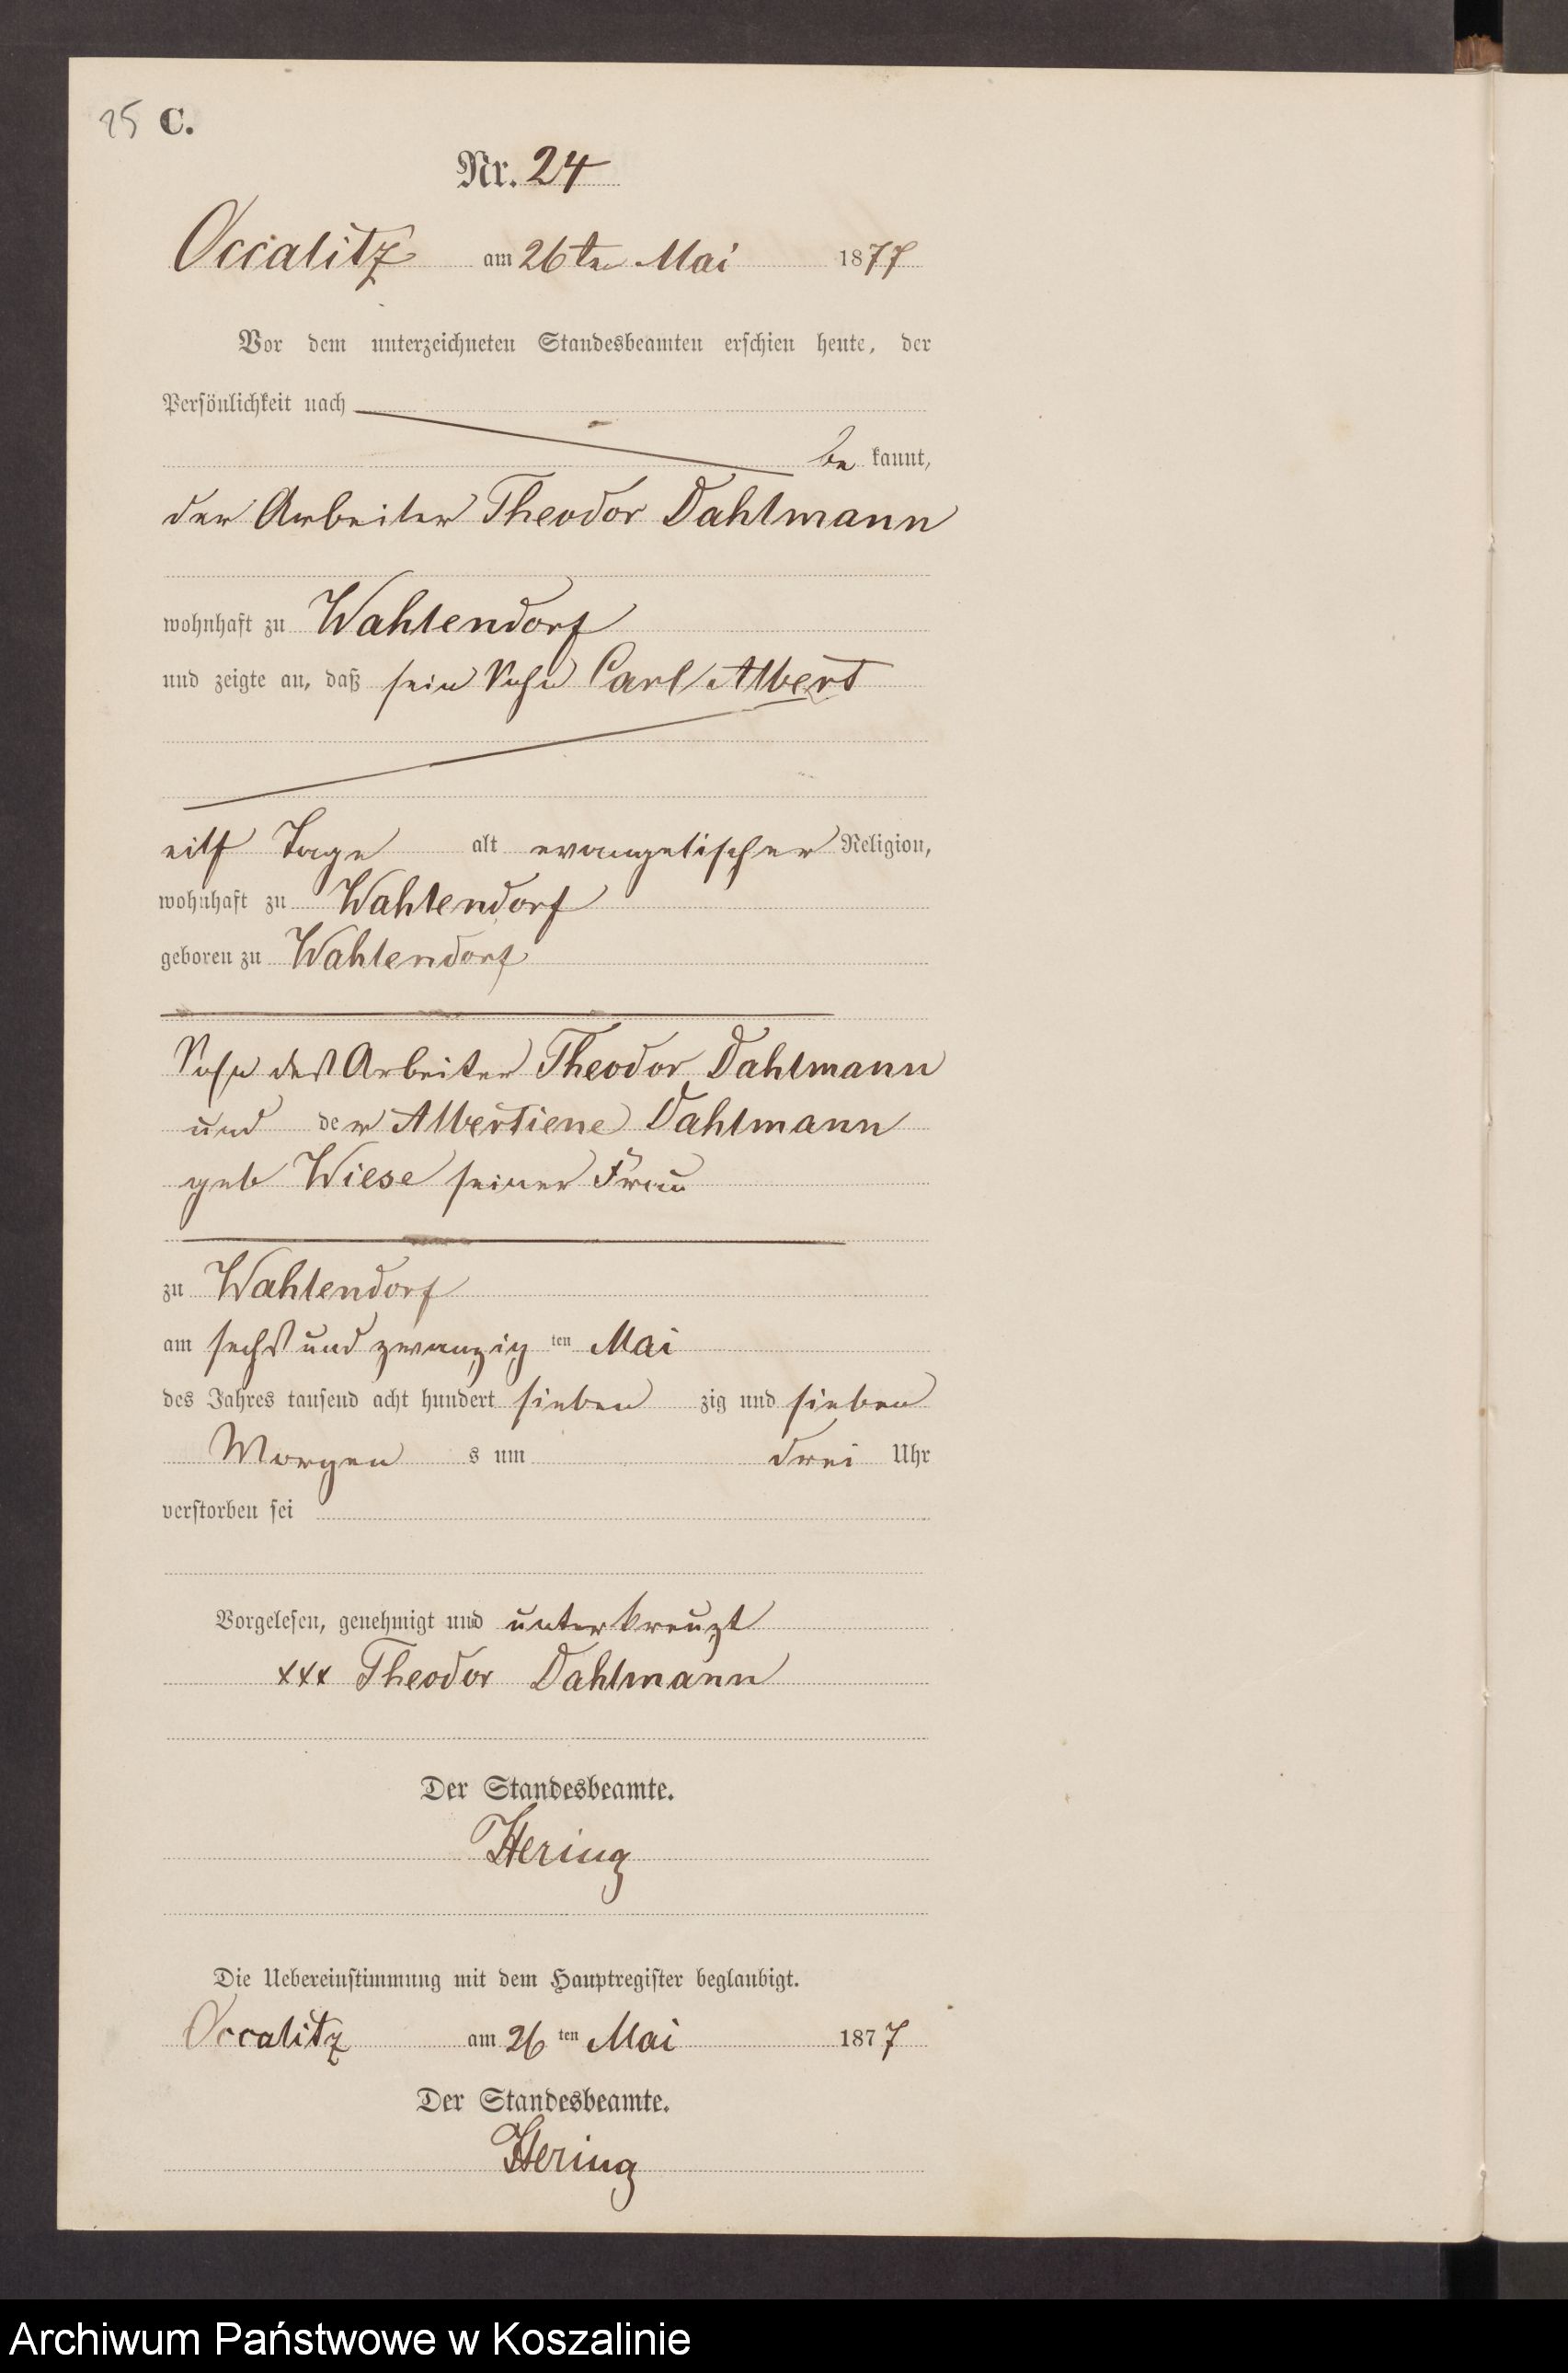 25 C.
Nr. 24
Occalitz am 26ten Mai 1877
Vor dem unterzeichneten Standesbeamten erschien heute, der
Persönlichkeit nach
be kannt,
der Arbeiter Theodor Dahlmann
wohnhaft zu Wahlendorf
und zeigte an, daß sein Sohn Carl Albert
eilf Tage alt evangelischer Religion,
wohnhaft zu Wahlendorf
geboren zu Wahlendorf
Sohn des Arbeiter Theodor Dahlmann
und der Albertiene Dahlmann
geb Wiese seiner Frau
zu Wahlendorf
am sechs und zwanzig ten Mai
des Jahres tausend acht hundert sieben zig und sieben
Morgen s um drei Uhr
verstorben sei
Vorgelesen, genehmigt und unterkreuzt
xxx Theodor Dahlmann
Der Standesbeamte.
Hering
Die Uebereinstimmung mit dem Hauptregister beglaubigt.
Occalitz am 26 ten Mai 1877
Der Standesbeamte.
Hering
Archiwum Państwowe w Koszalinie